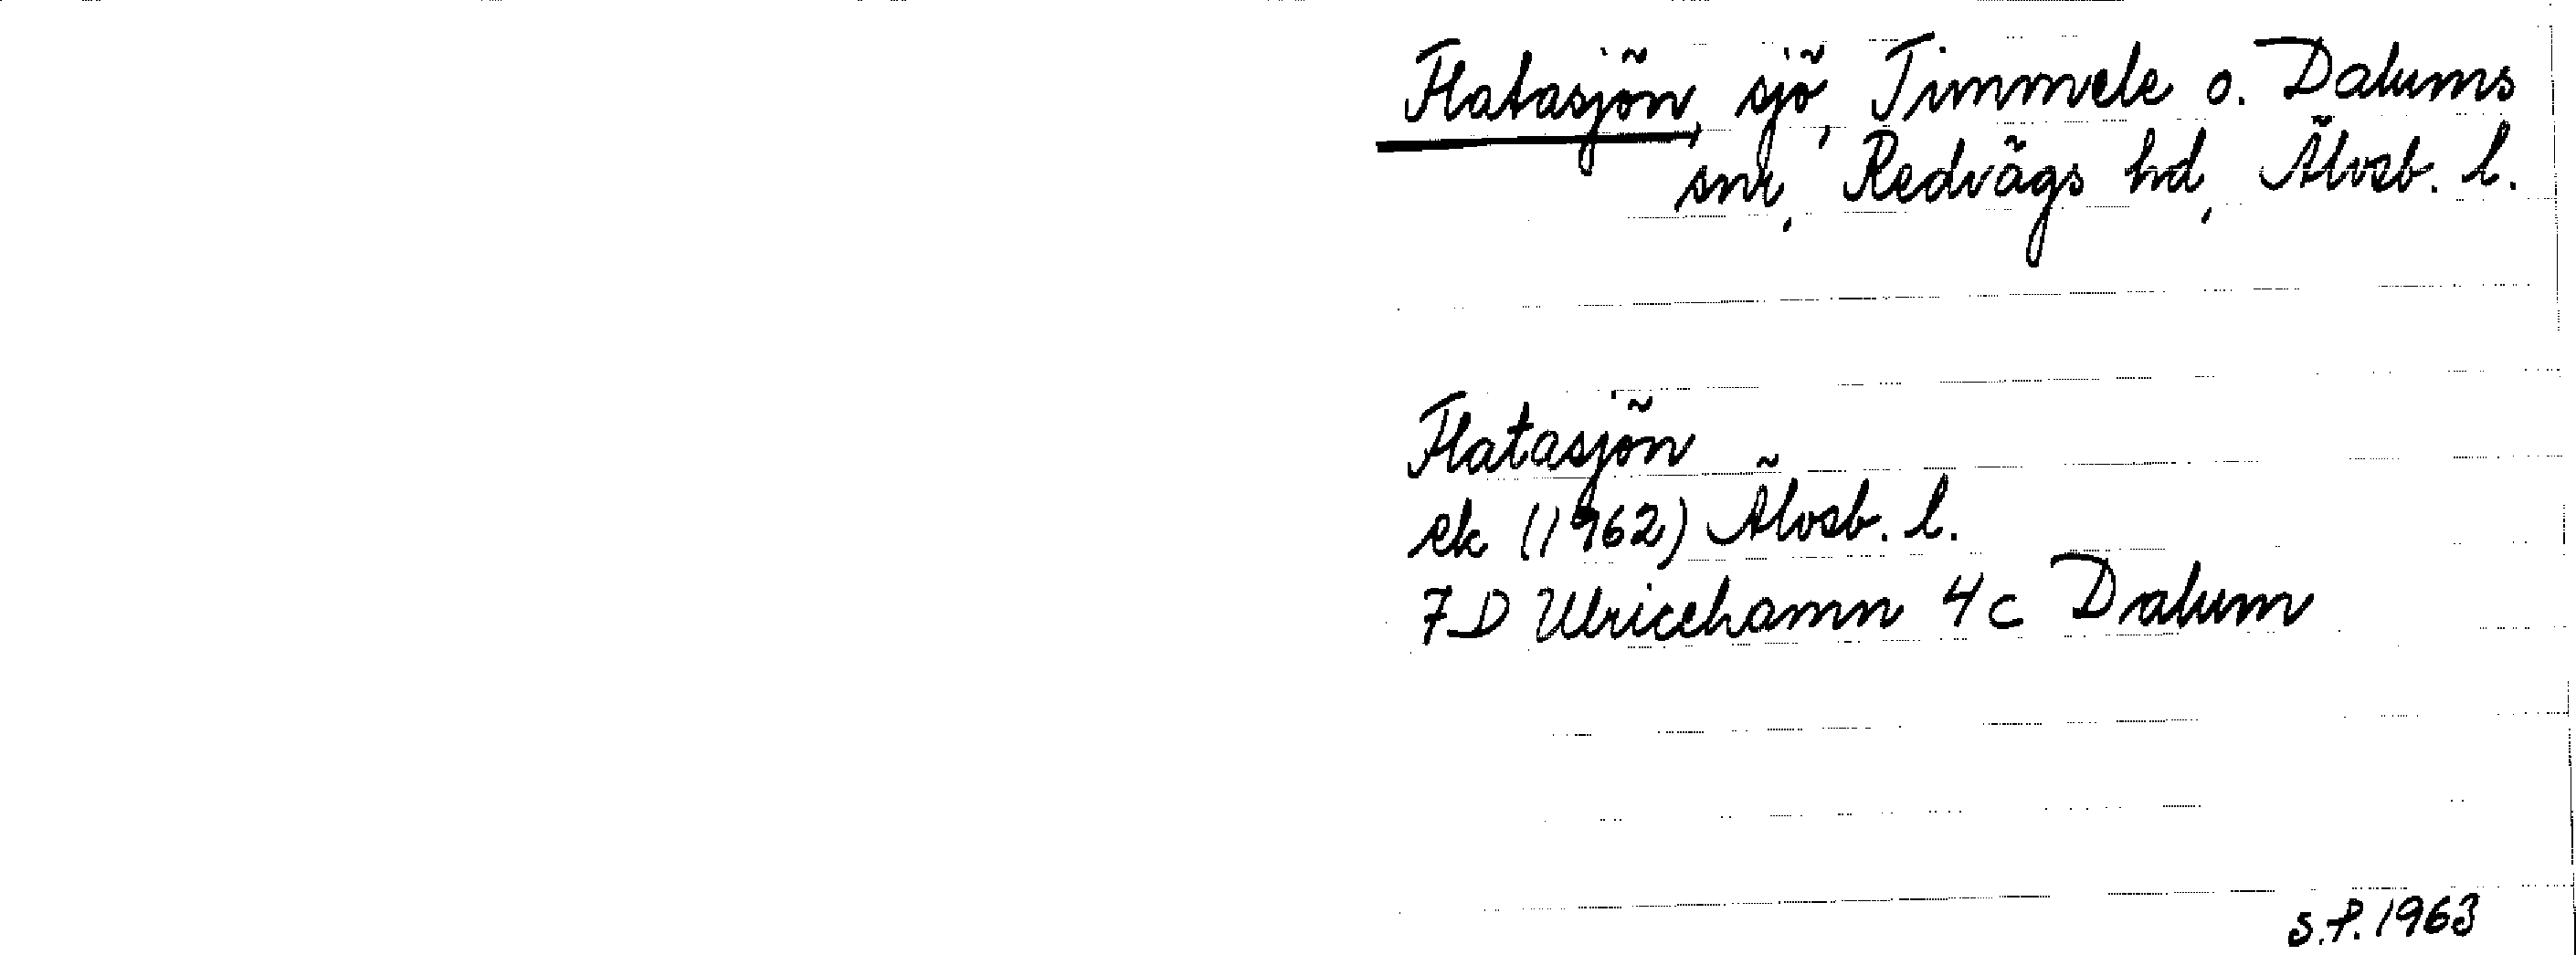 Flatasjön, sjö, Timmele o. Dalums
snr, Redvägs hd, Älvsb. l.
Flatasjön
ek (1962) Älvsb. l.
7D Ulricehamn 4c Dalum
S.P. 1963